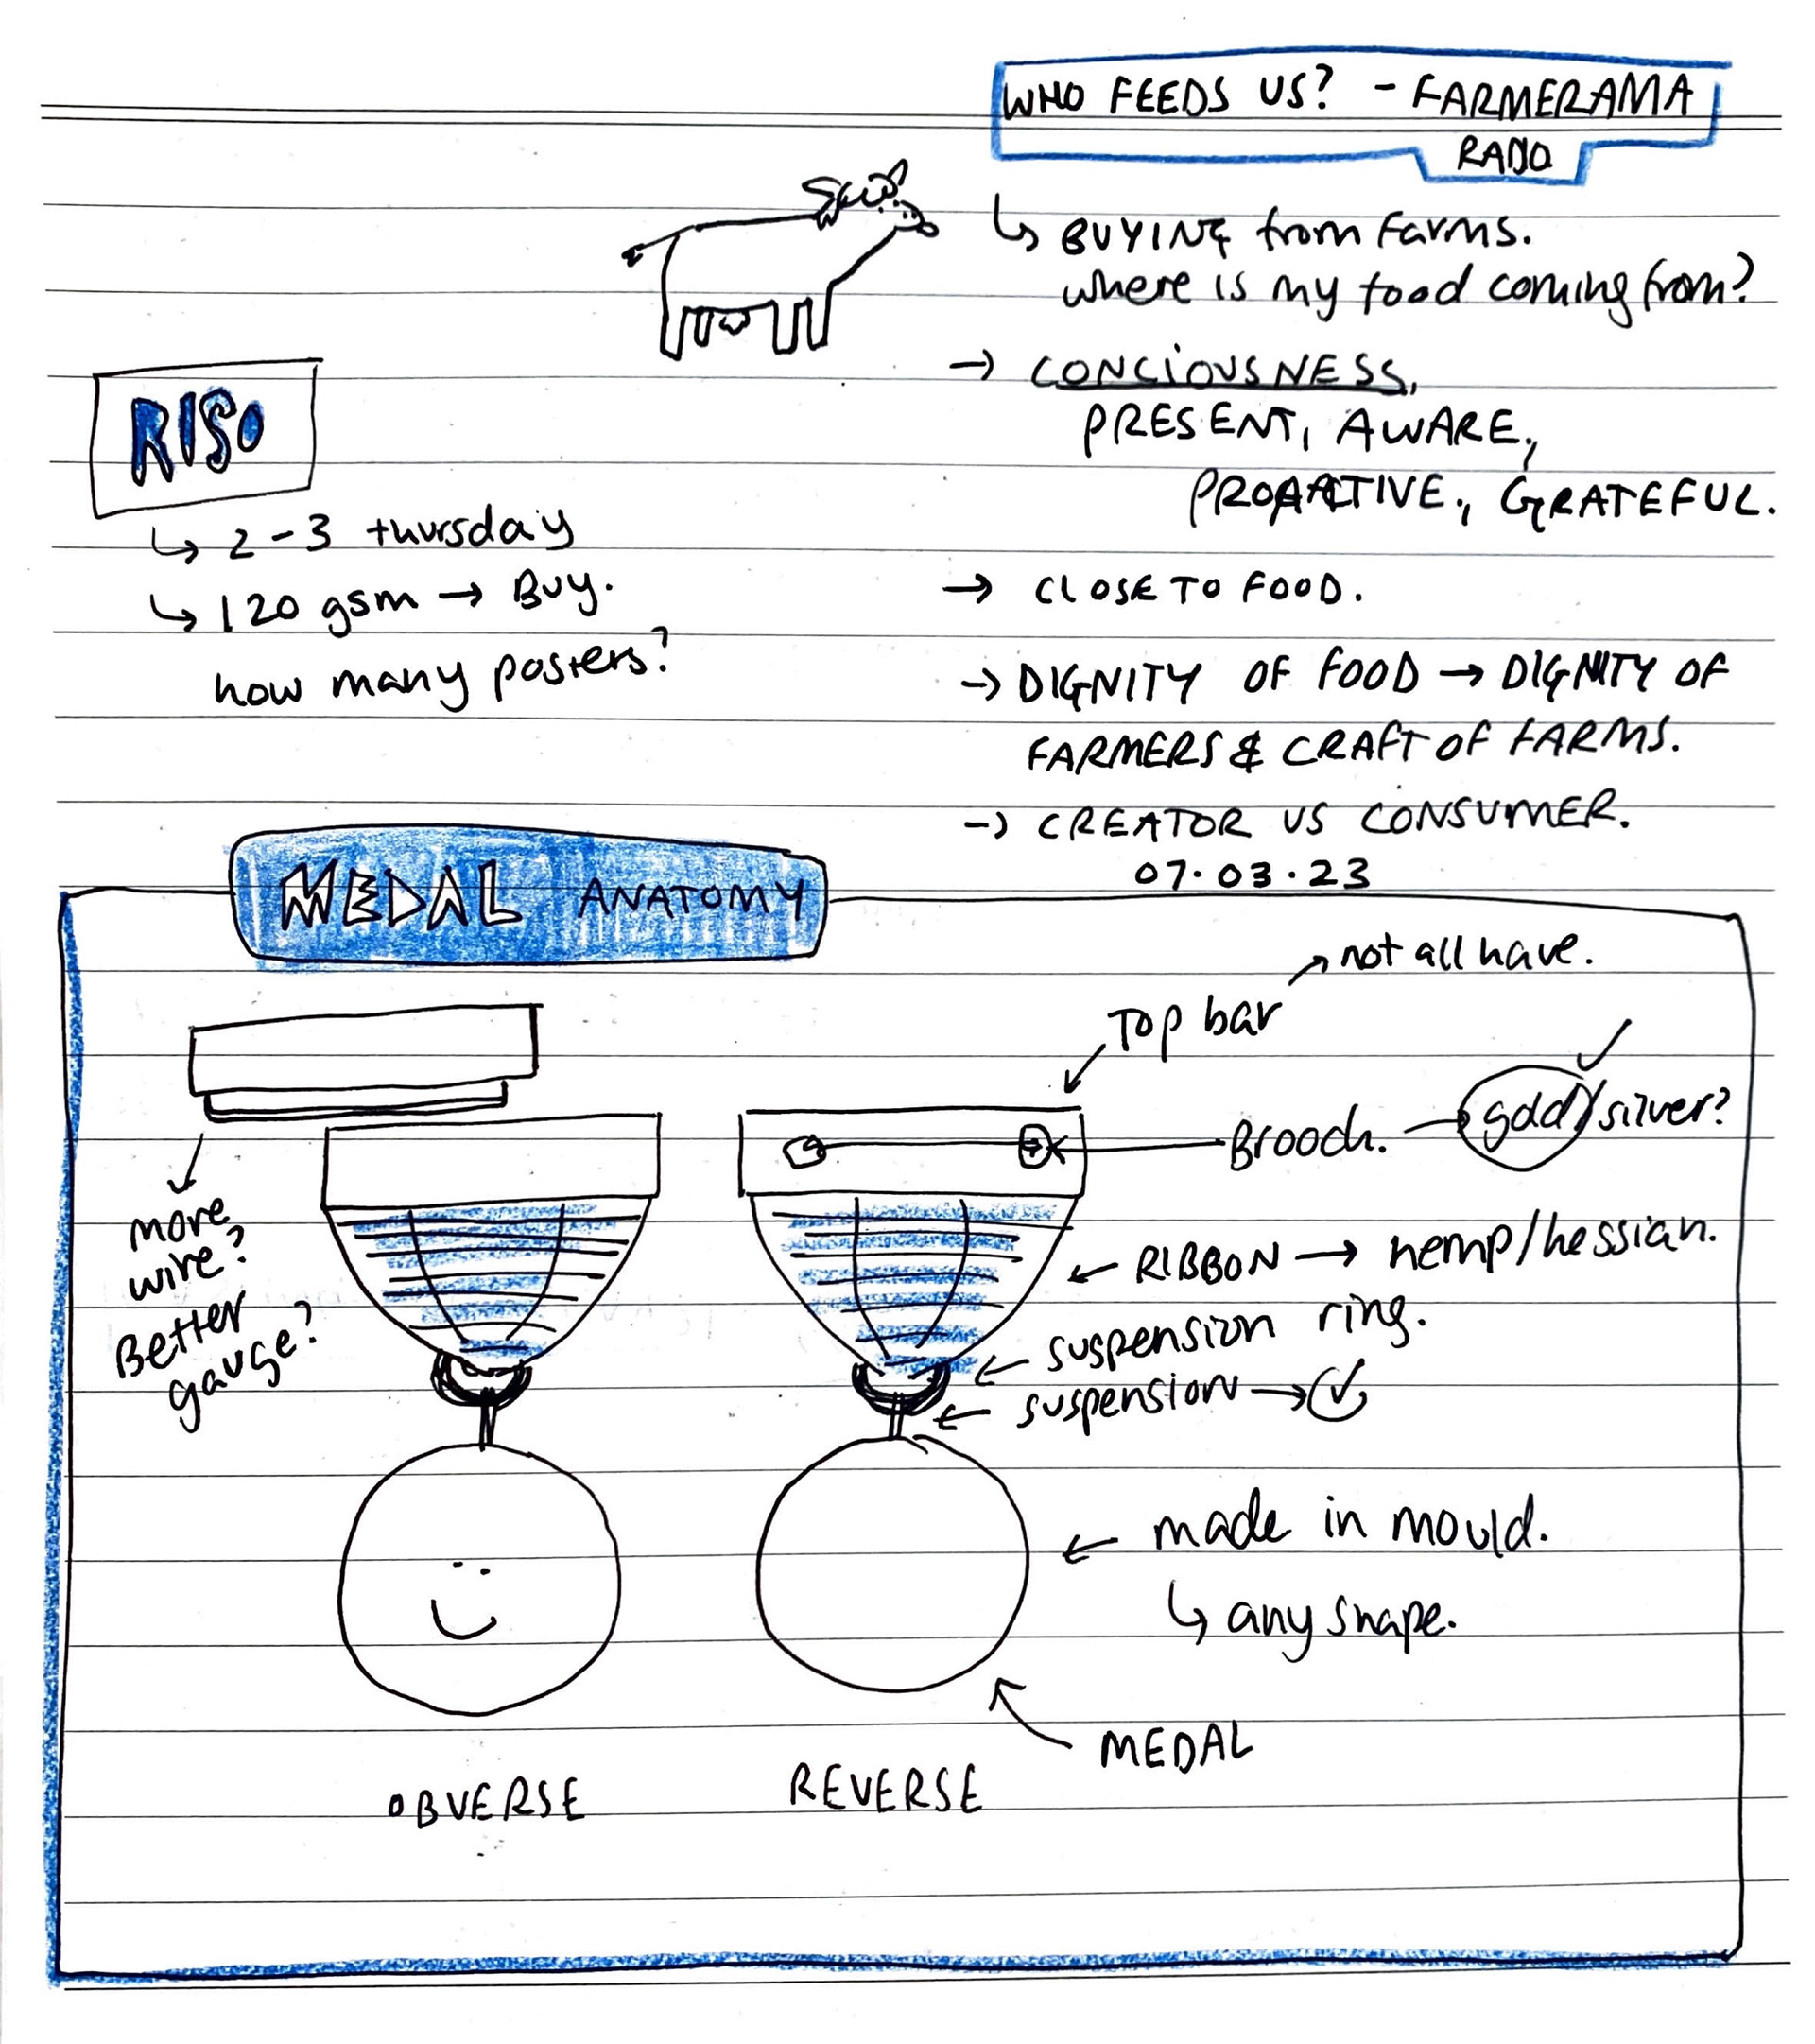 WHO FEEDS US? - FARMERAMA
RADIO
↳ BUYING from Farms.
where is my food coming from?
→ CONCIOUSNESS,
PRESENT, AWARE,
PROACTIVE, GRATEFUL.
→ CLOSE TO FOOD.
→ DIGNITY OF FOOD → DIGNITY OF
FARMERS & CRAFT OF FARMS.
→ CREATOR VS CONSUMER.
07.03.23
RISO
↳ 2-3 thursday
↳ 120 gsm → Buy.
how many posters?
MEDAL ANATOMY
not all have.
Top bar
Brooch. → gold/silver?
more
wire?
Better
gauge?
RIBBON → hemp/hessian.
suspension ring.
suspension →
made in mould.
↳ any shape.
MEDAL
OBVERSE
REVERSE